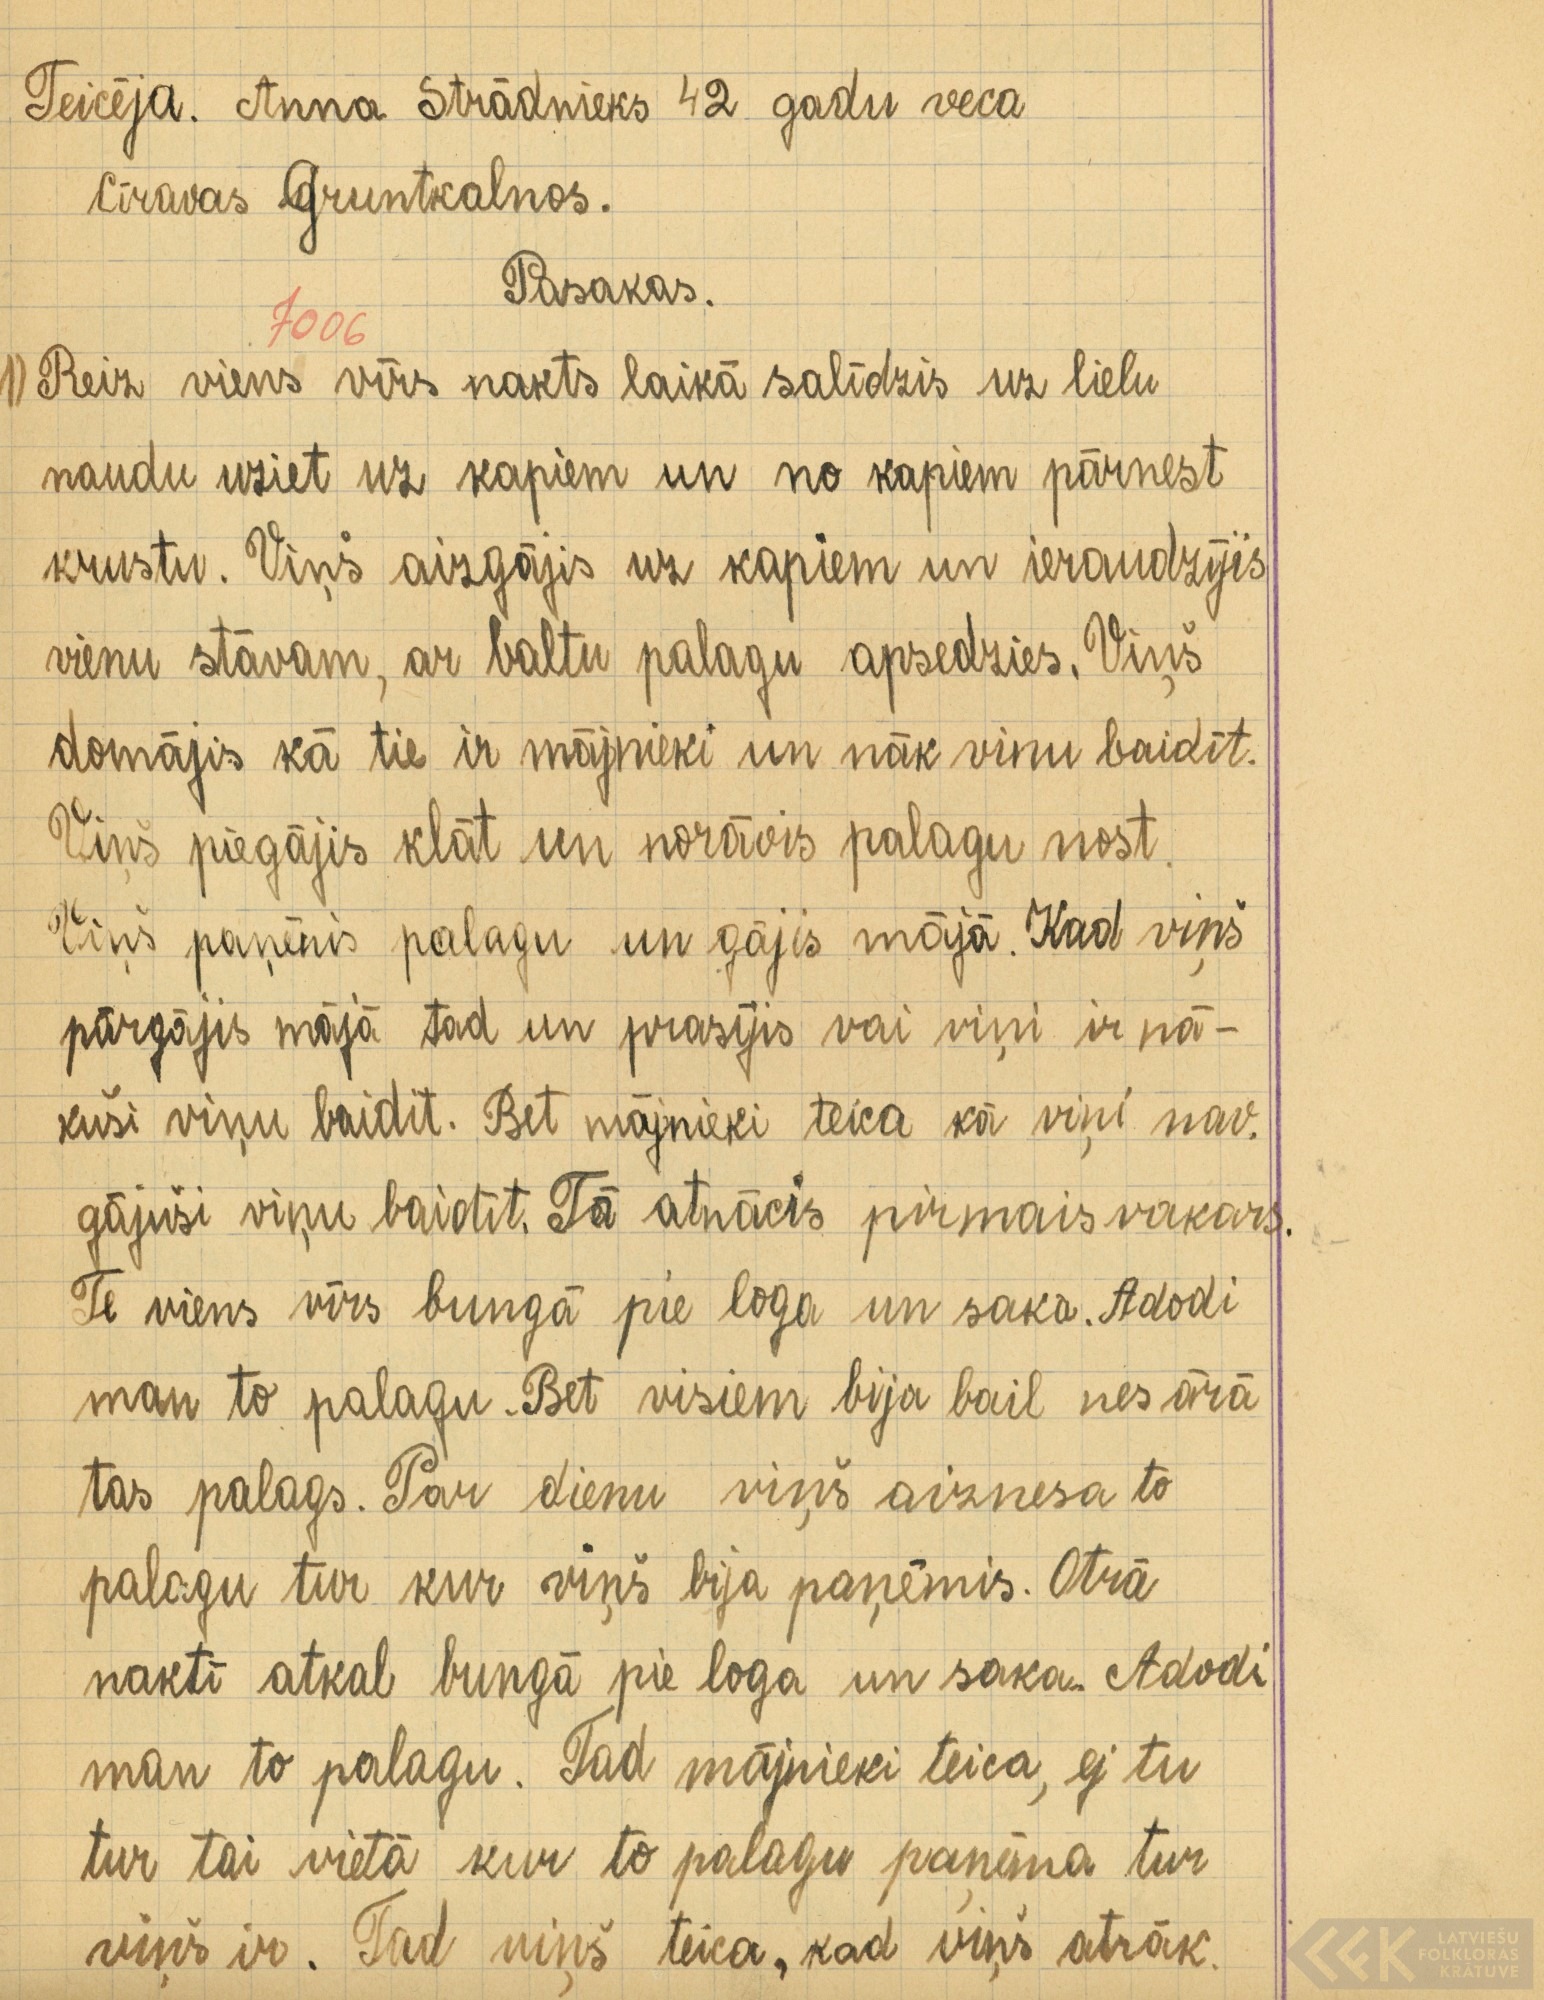 Teicēja. Anna Strādnieks 42 gadu veca
Cīravas Gruntkalnos.
Pasakas.
7006
1) Reiz viens vīrs nakts laikā salīdzis uz lielu
naudu uziet uz kapiem un no kapiem pārnest
krustu. Viņš aizgājis uz kapiem un ieraudzījis
vienu stāvam, ar baltu palagu apsedzies. Viņš
domājis kā tie ir mājnieki un nāk vinu baidīt.
Viņš piegājis klāt un norāvis palagu nost.
Viņš paņēmis palagu un gājis mājā. Kad viņš
pārgājis mājā tad un prasījis vai viņi ir nā-
kuši viņu baidīt. Bet mājnieki teica kā viņi nav.
gājuši viņu baidīt. Tā atnācis pirmais vakars.
Te viens vīrs bungā pie loga un saka. Adodi
man to palagu. Bet visiem bija bail nes ārā
tas palags. Par dienu viņš aiznesa to
palagu tur kur viņš bija paņēmis. Otrā
naktī atkal bungā pie loga un saka. Adodi
man to palagu. Tad mājnieki teica, ej tu
tur tai vietā kur to palagu paņēma tur
viņš ir. Tad viņš teica, kad viņš atrāk.
LATVIEŠU
FOLKLORAS
KRĀTUVE